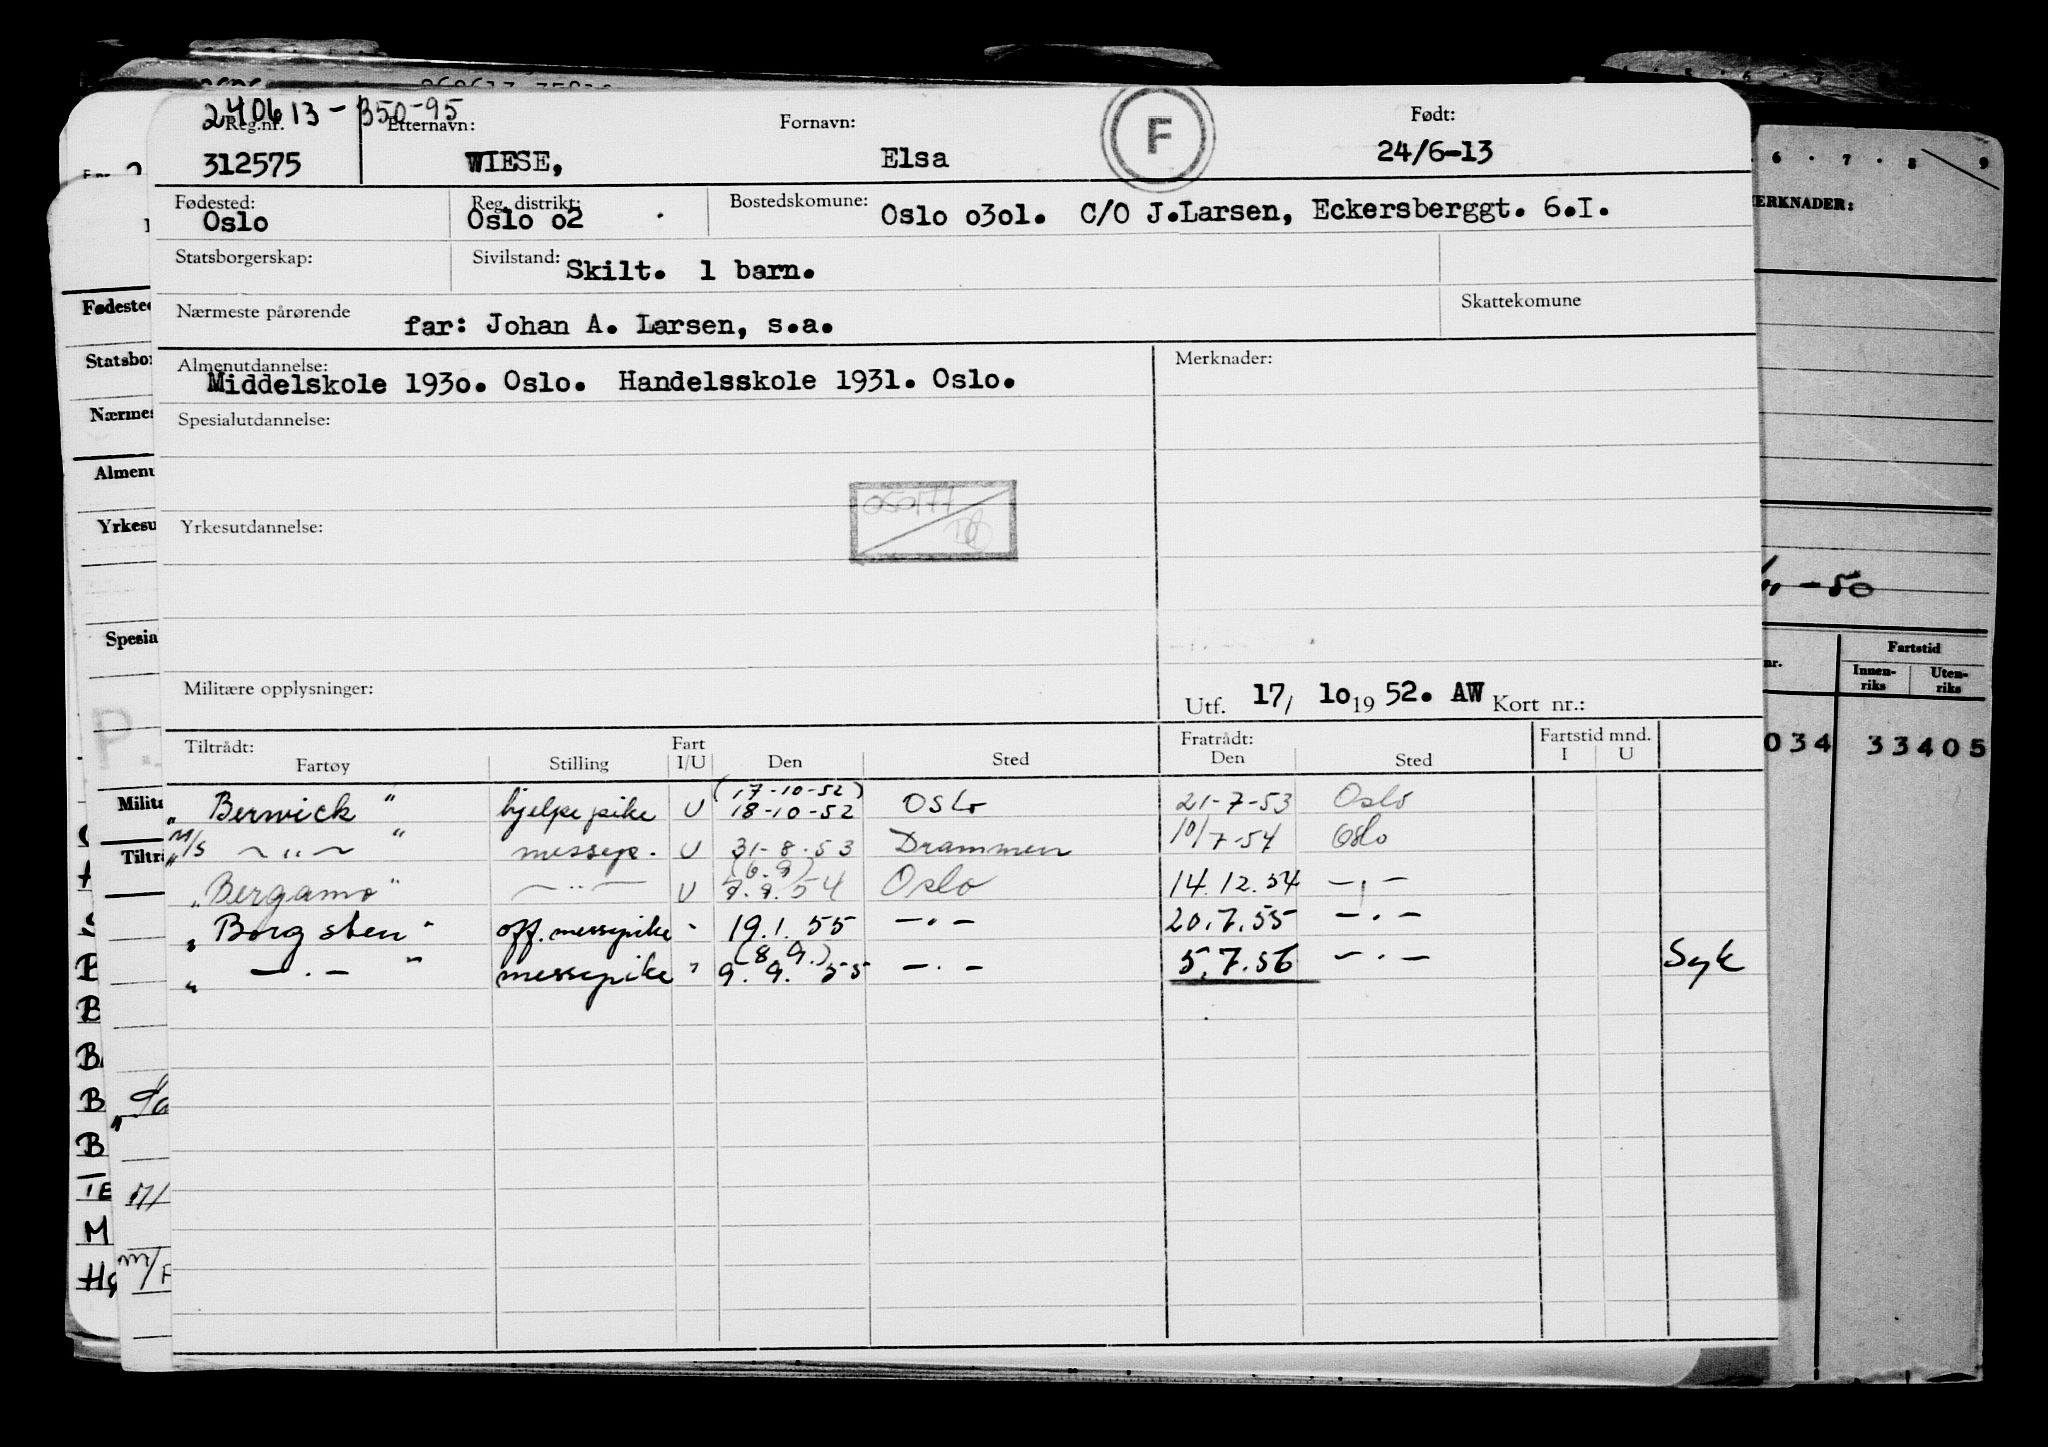 240613-350-95
Reg.nr. Etternavn: Fornavn: F Født:
312575 WIESE, Elsa 24/6-13
Fødested: Reg. distrikt: Bostedskomune:
Oslo Oslo o2 Oslo o3ol. C/O J.Larsen, Eckersberggt. 6.I.
Statsborgerskap: Sivilstand: Skilt. 1 barn.
Nærmeste pårørende far: Johan A. Larsen, s.a. Skattekomune
Almenutdannelse: Merknader:
Middelskole 193o. Oslo. Handelsskole 1931. Oslo.
Spesialutdannelse:
050177
Yrkesutdannelse:
Militære opplysninger:
Utf. 17/ 1o 19 52. AW Kort nr.:
Tiltrådt: Fart Fratrådt: Fartstid mnd.
Fartøy Stilling I/U Den Sted Den Sted I U
(17-10-52)
„ Berwick " hjelpepike U 18-10-52 Oslo 21-7-53 Oslo
M/S „ — " — " messep. U 31-8-53 Drammen 10/7-54 Oslo
(6.9)
„ Bergamo " — " — U 7.9.54 Oslo 14.12.54 — " —
„ Borgsten " off. messepike " 19.1.55 — " — 20.7.55 — " —
(8.9.)
„ — " — " messepike " 9.9.55 — " — 5.7.56 — " — Syk
6 · 7 · 8 9
MERKNADER:
-50
nr. Fartstid
Innen-riks Uten-riks
034 33405
Fødested
Statsbor
Nærmes
Almenu
Yrkesu
Spesia
P.
Milita
Tiltrå
B
B
B
B
B
M
M/
m/F